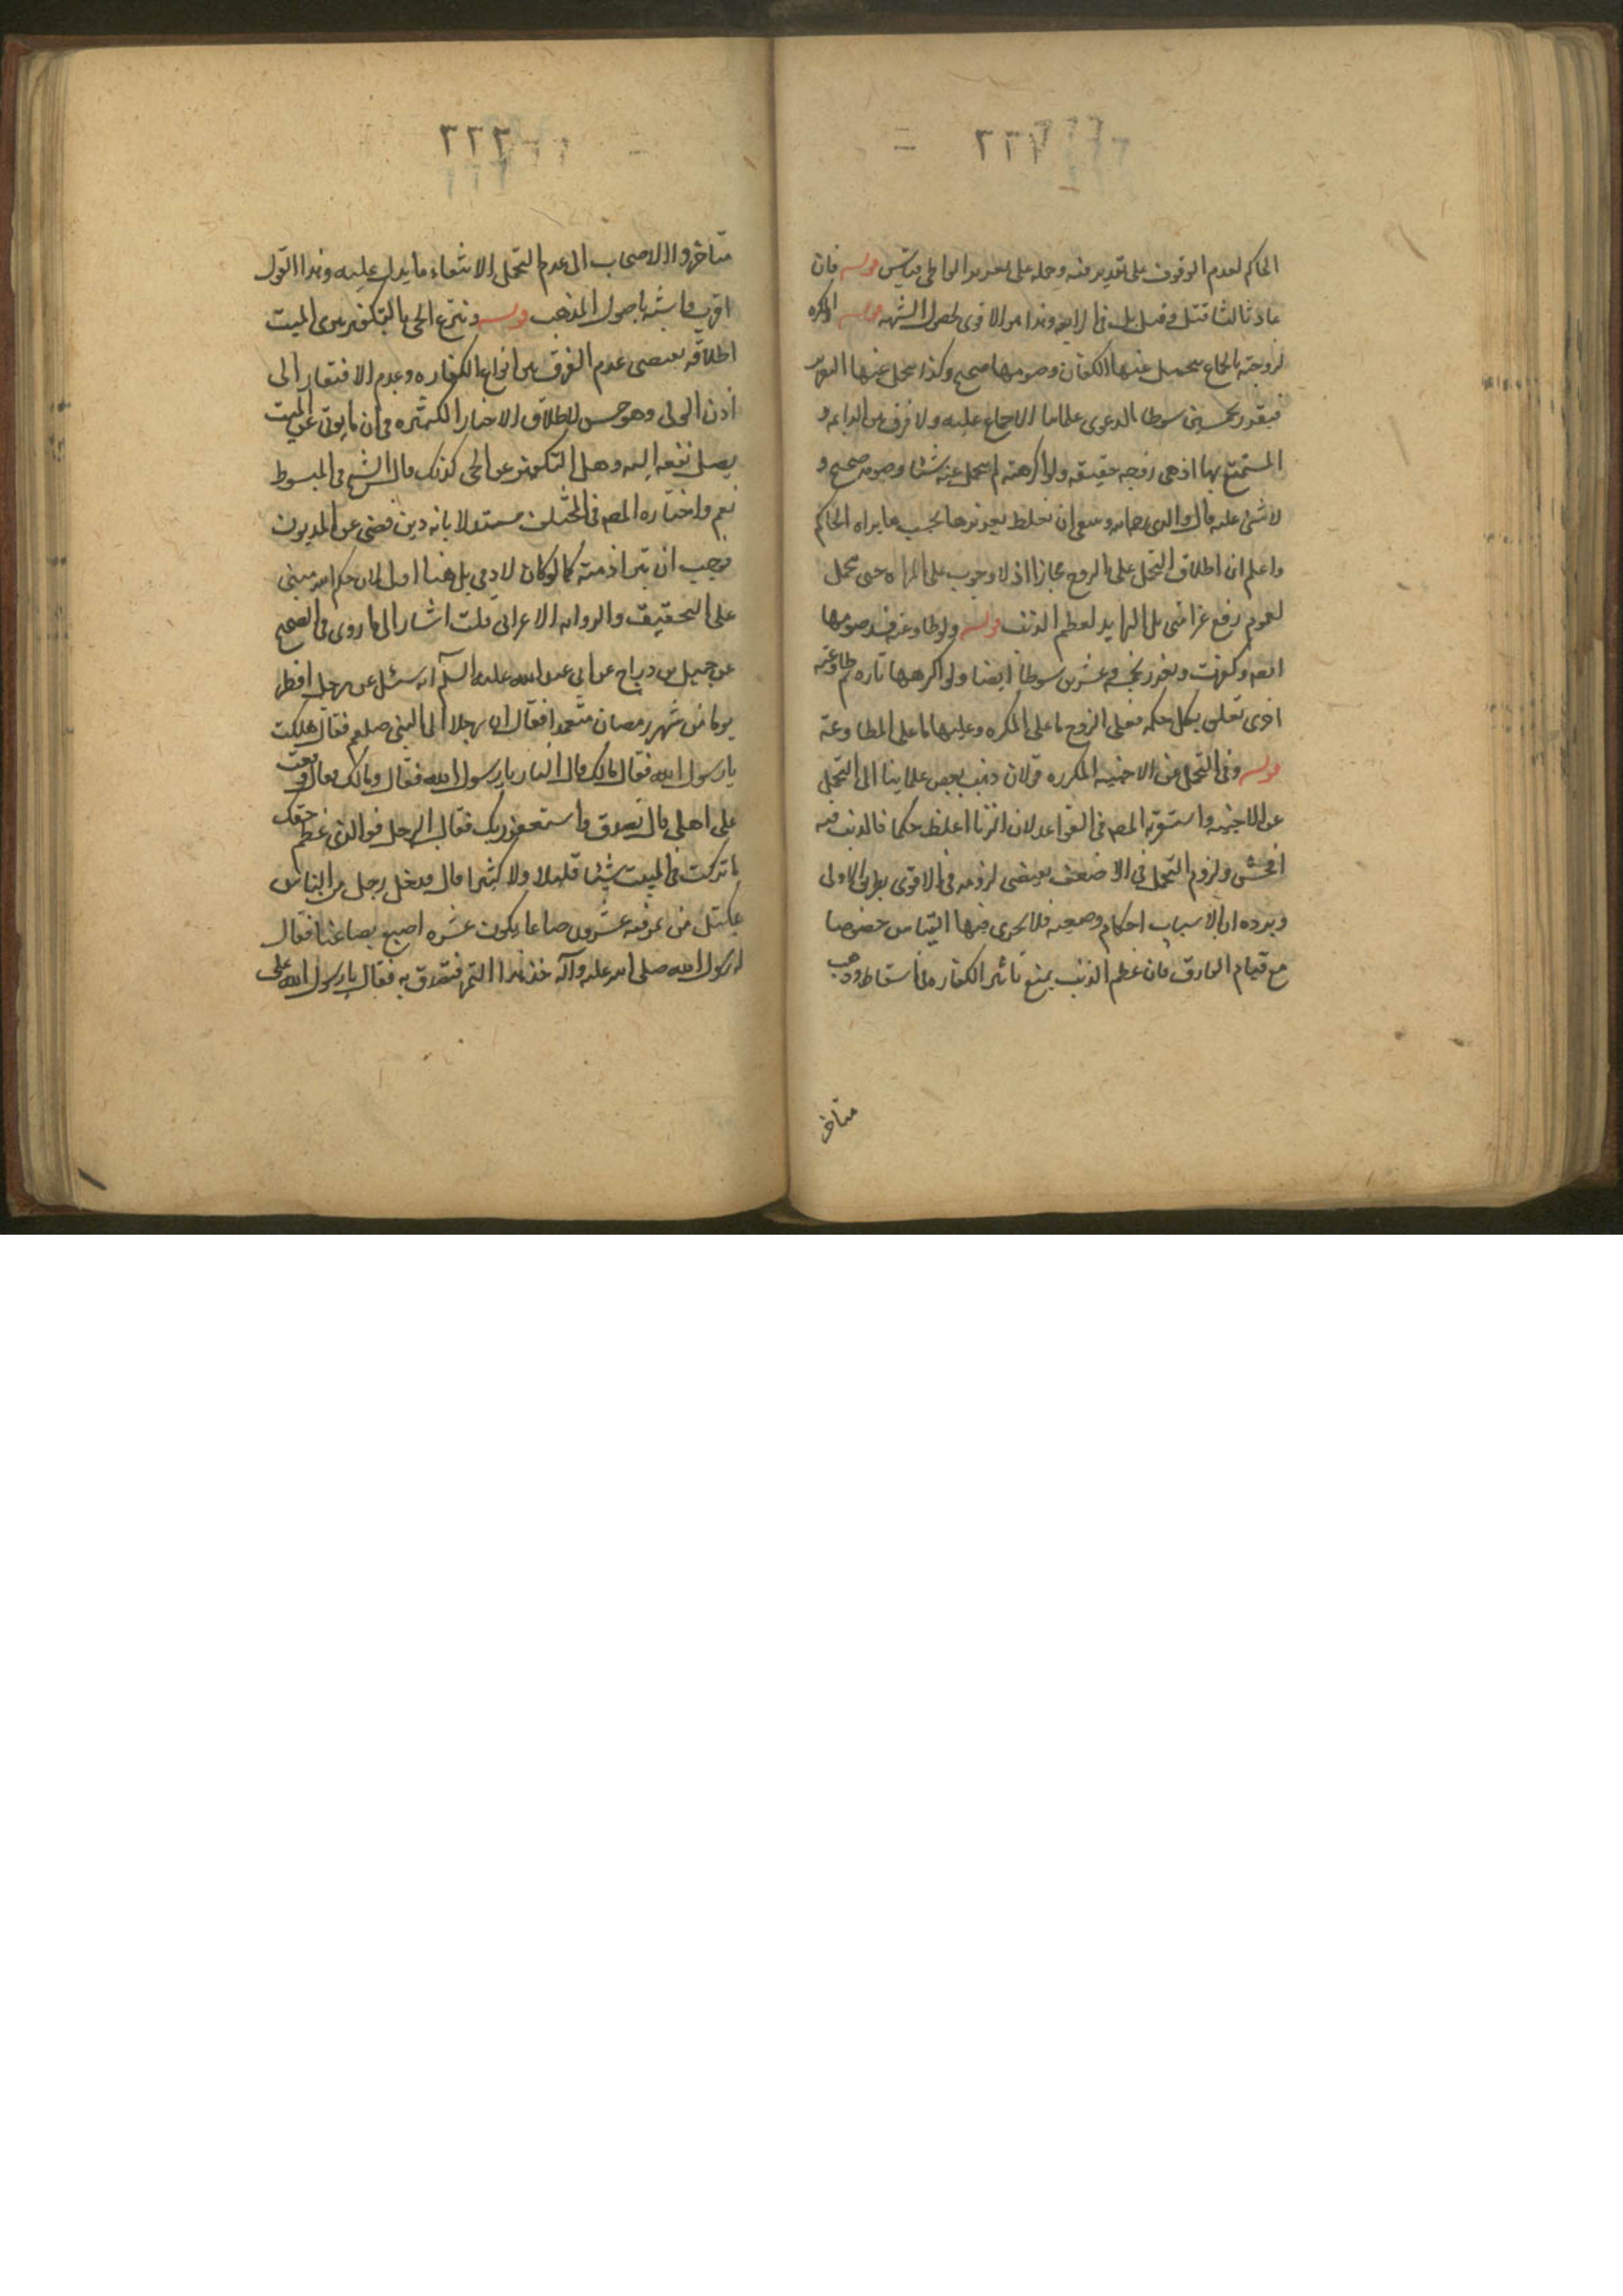 ٢٢١
الحاكم لعدم الوقوف على تقدير فيه وحمله على تعزير الواطى قياس قوله فان
عاد ثالثا قتل وقيل بل فى الرابعه وهذا هو الاقوى لحصول الشبهه قوله المكره
لزوجته بالجماع يتحمل عنها الكفارة وصومها صحيح وكذا يتحمل عنها التعزير
فيعزر بخمسين سوطا الدعوى علمائنا الاجماع عليه ولا فرق بين الدايمه و
المستمتع بها اذ هى زوجه حقيقه ولو اكرهته لم يتحمل عنه شيئا وصومه صحيح و
لا شئ عليه قال والدى رحمه الله وينبغى ان يغلظ تعزيرها بحسب ما يراه الحاكم
واعلم ان اطلاق التحمل على الزوج مجازا اذ لا وجوب على المراه حتى يتحمل
لعموم رفع عن امتى بل الزايد لعظم الذنب قوله ولو طاوعته فسد صومها
ايضا وكفرت وتعزر بخمسه وعشرين سوطا ايضا ولو اكرهها تاره ثم طاوعته
اخرى تعلق بكل حكمه فعلى الزوج ما على المكره وعليها ما على المطاوعة
قوله وفى التحمل عن الاجنبيه المكرهه قولان ذهب بعض علماينا الى التحمل
عن الاجنبيه واستقربه المصه فى القواعد لان الزنا اغلظ حكما فالذنب فيه
افحش ولزوم التحمل فى الاضعف يقتضى لزومه فى الاقوى بطريق الاولى
ويرده ان الاسباب احكام وضعيه فلا يجرى فيها القياس خصوصا
مع قيام الفارق فان عظم الذنب يمنع تاثير الكفاره فى اسقاطه وذهب
متاخر
٢٢٢
متاخروا الاصحاب الى عدم التحمل لانتفاء ما يدل عليه وهذا القول
اقرب واشبه باصول المذهب قوله وتبرع الحى بالتكفير يبرى الميت
اطلاقه يقتضى عدم الفرق بين انواع الكفاره وعدم الافتقار الى
اذن الولى وهو حسن لاطلاق الاخبار الكثيره فى ان ما يوتى عن الميت
يصل نفعه اليه وهل التكفير عن الحى كذلك قال الشيخ فى المبسوط
نعم واختاره المصه فى المختلف مستدلا بانه دين قضى عن المديون
فوجب ان تبرا ذمته كما لو كان لادمى بل هنا اولى لان حكم الله مبنى
على التحقيق والروايه الاعرابى قلت اشار الى ما روى فى الصحيح
عن جميل بن دراج عن ابى عبد الله عليه السلم انه سئل عن رجل افطر
يوما من شهر رمضان متعمدا فقال ان رجلا اتى النبى صلعم فقال هلكت
يا رسول الله فقال مالك قال النار يا رسول الله فقال ومالك فقال وقعت
على اهلى قال تصدق واستغفر ربك فقال الرجل فوالذى عظم حقك
ما تركت فى البيت شيئا قليلا ولا كثيرا قال فدخل رجل من الناس
بمكتل من تمر فيه عشرون صاعا يكون عشره اصبع بصاعنا فقال
له رسول الله صلى الله عليه وآله خذ هذا التمر فتصدق به فقال يا رسول الله على